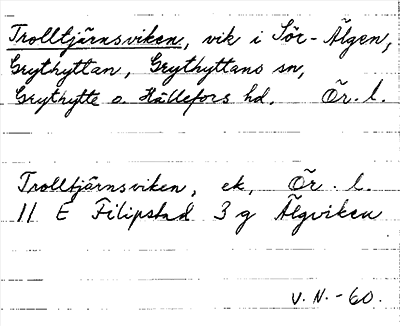 Trolltjärnsviken, vik i Sör-Älgen,
Grythyttan, Grythyttans sn,
Grythytte o. Hällefors hd. Ör. l.
Trolltjärnsviken, ek, Ör. l.
11 E Filipstad 3 g Älgviken
V. N. -60.